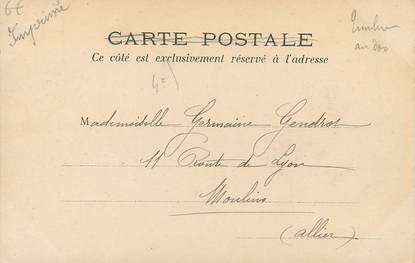 6€
Imprimé
Timbre
au dos
CARTE POSTALE
Ce côté est exclusivement réservé à l'adresse
Mademoiselle Germaine Gendrot
11 Route de Lyon
Moulins
(allier)